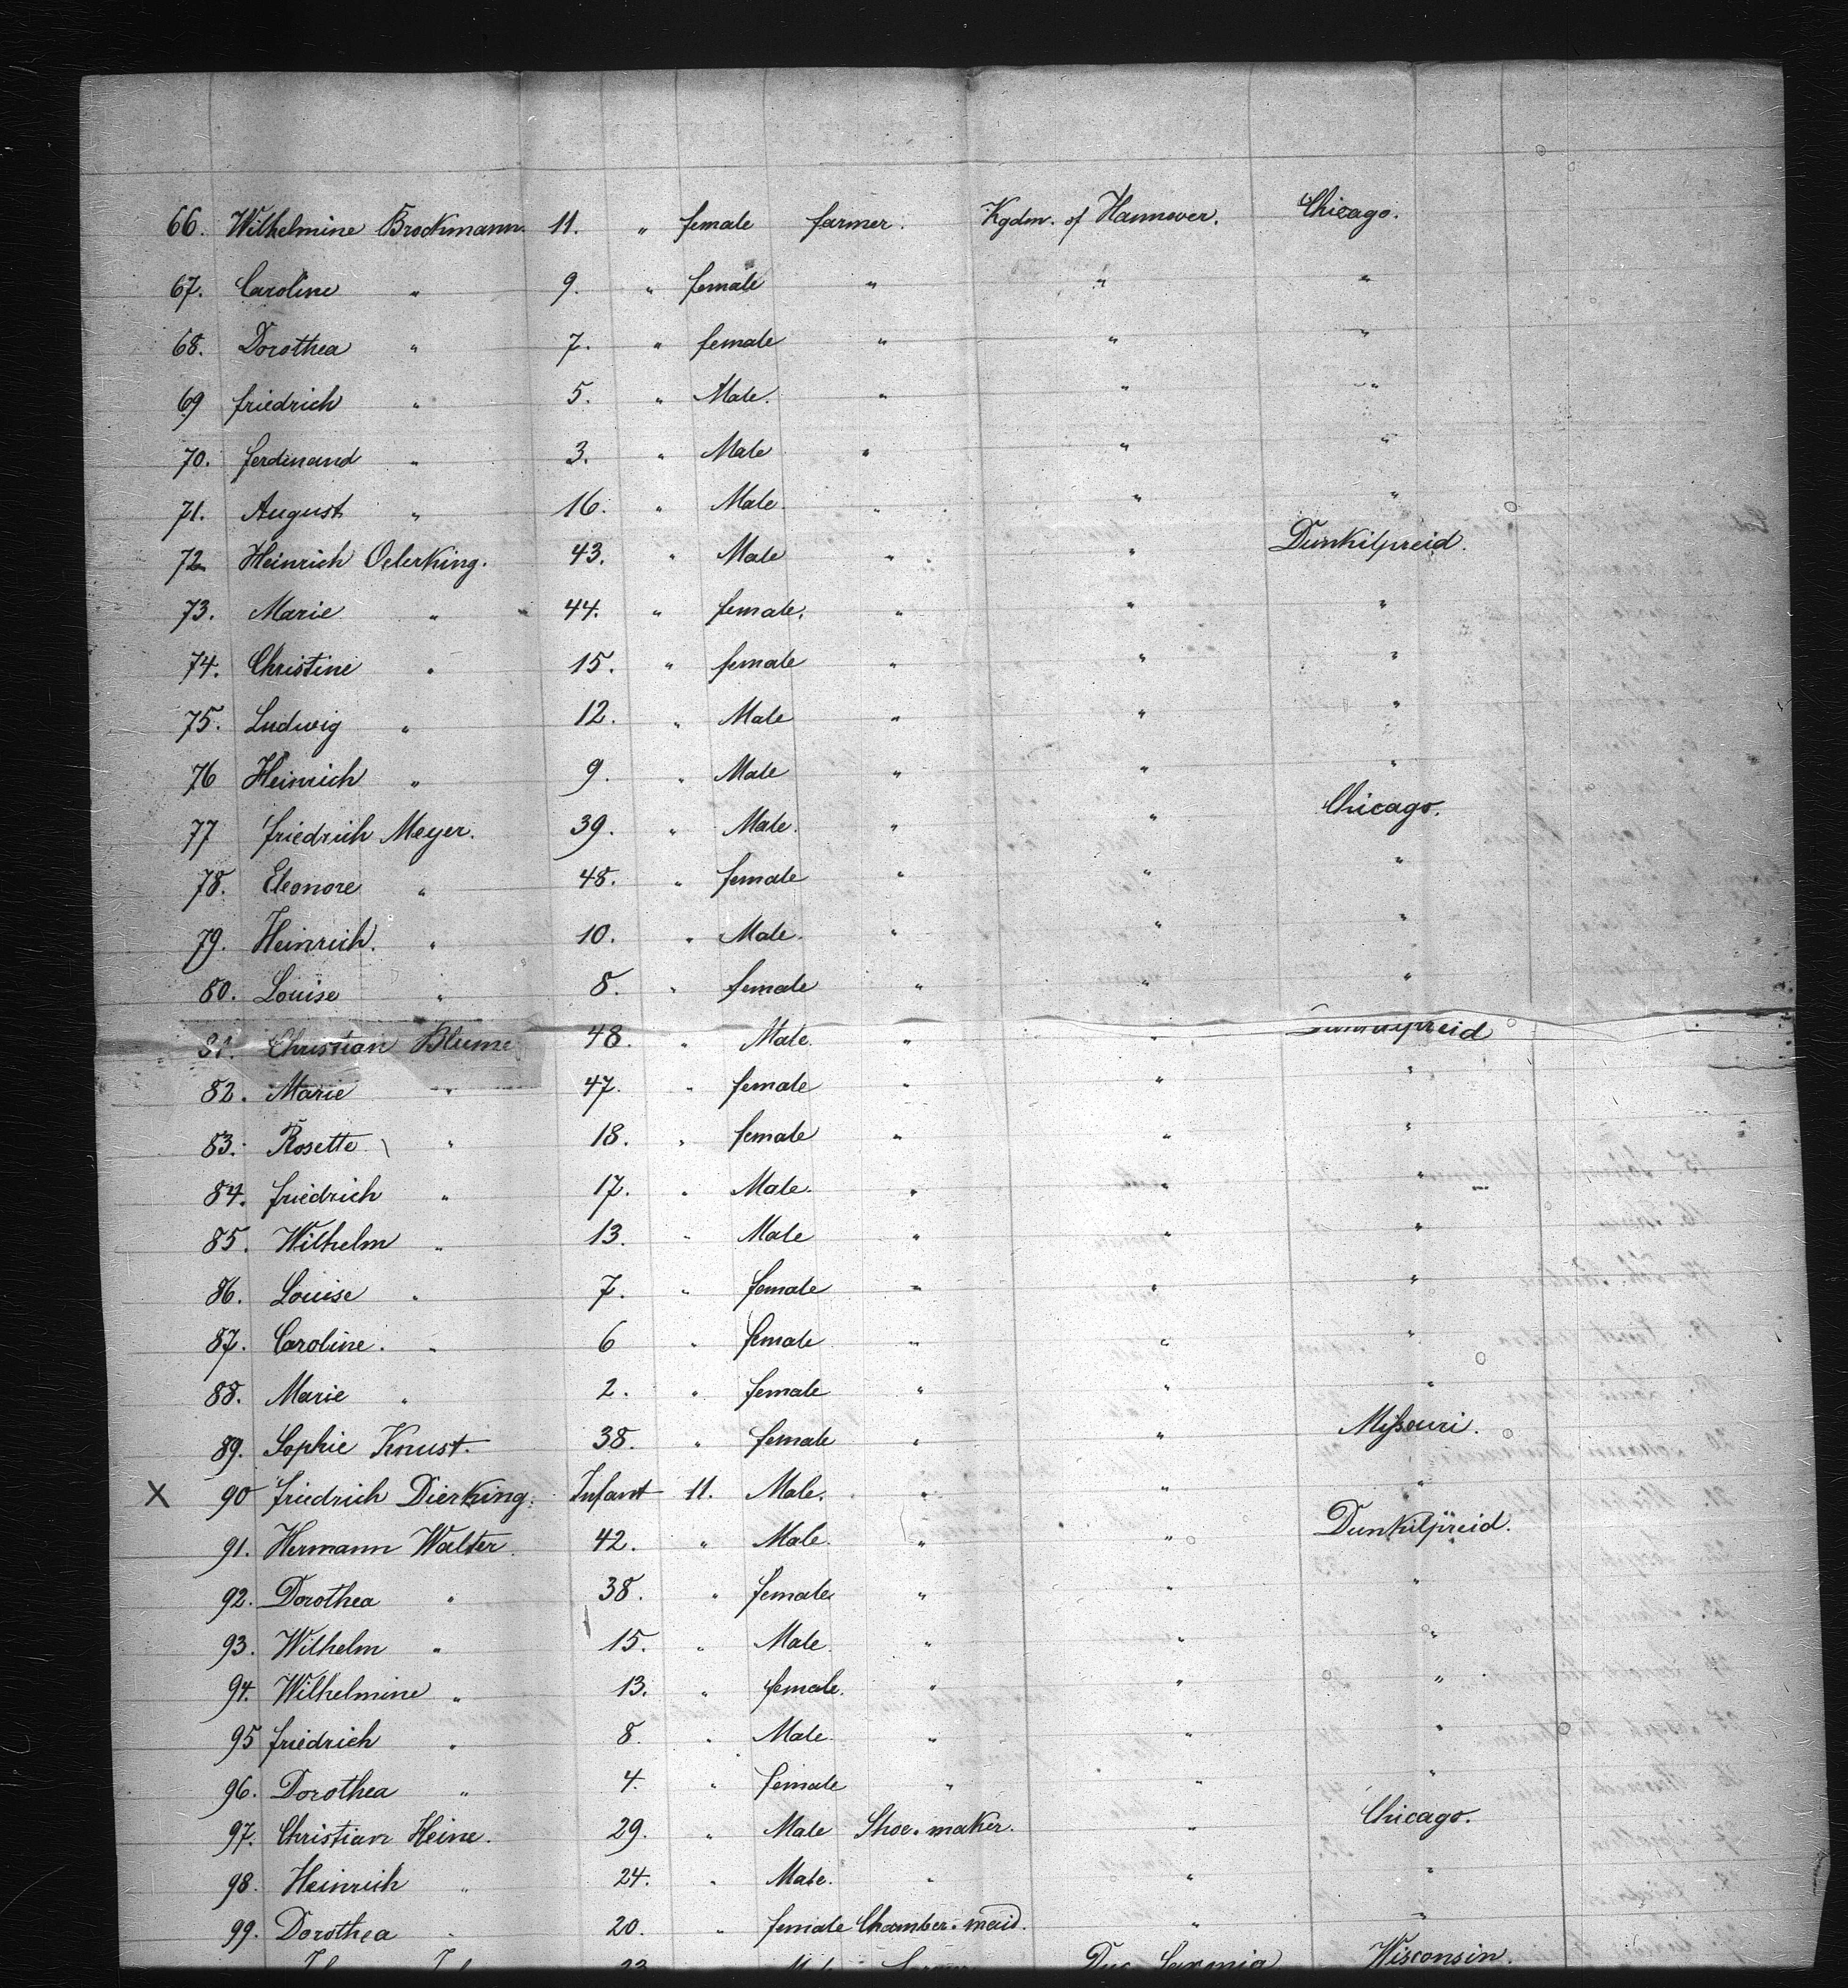 66. Wilhelmine Brockmann. 11. " female farmer. Kgdm. of Hannover. Chicago.
67. Caroline " 9. " female " " "
68. Dorothea " 7. " female " " "
69 friedrich " 5. " Male. " " "
70. ferdinand " 3. " Male " " "
71. August " 16. " Male. " " "
72. Heinrich Oelerking. 43. " Male " " Dunkilpreid.
73. Marie " 44. " female. " " "
74. Christine " 15. " female " " "
75. Ludwig " 12. " Male " " "
76 Heinrich " 9. " Male " " "
77 friedrich Meyer. 39. " Male. " " Chicago.
78. Eleonore " 48. " female " " "
79. Heinrich. " 10. " Male. " " "
80. Louise " 8. " female " " "
81. Christian Blume 48. " Male. " "
82. Marie " 47. " female " " "
83. Rosette " 18. " female " " "
84. friedrich " 17. " Male. " " "
85. Wilhelm " 13. " Male " " "
86. Louise " 7. " female " " "
87. Caroline. " 6 " female " " "
88. Marie " 2. " female " " "
89. Sophie Knust. 38. " female " " Missouri.
X 90 friedrich Dierking. Infant 11. Male. " " "
91. Hermann Walter. 42. " Male. " " Dunkilpreid.
92. Dorothea " 38. " female " " "
93. Wilhelm " 15. " Male. " " "
94. Wilhelmine " 13. " female. " " "
95 friedrich " 8. " Male. " " "
96. Dorothea " 4. " female " " "
97. Christian Heine. 29. " Male Shoe-maker. " Chicago.
98. Heinrich " 24. " Male. " " "
99. Dorothea " 20. " female Chamber-maid. " "
Wisconsin.